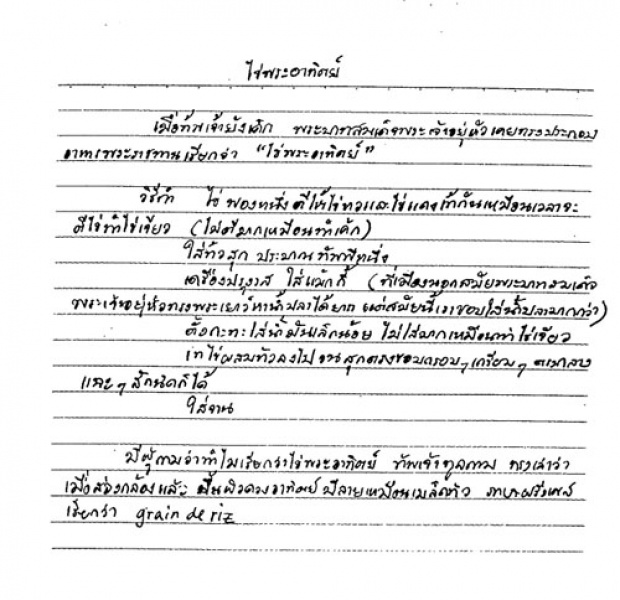 ไข่พระอาทิตย์
เมื่อข้าพเจ้ายังเด็ก พระบาทสมเด็จพระเจ้าอยู่หัวเคยทรงประกอบ
อาหารพระราชทานเรียกว่า "ไข่พระอาทิตย์"
วิธีทำ ไข่ฟองหนึ่งตีให้ไข่ขาวและไข่แดงเข้ากันเหมือนเวลาจะ
ตีไข่ทำไข่เจียว (ไม่ตีมากเหมือนทำเค้ก)
ใส่ข้าวสุก ประมาณทัพพีหนึ่ง
เครื่องปรุงรส ใส่แม็กกี้ (ที่เมืองนอกสมัยพระบาทสมเด็จ
พระเจ้าอยู่หัวทรงพระเยาว์หาน้ำปลาได้ยาก แต่สมัยนี้เราชอบใส่น้ำปลามากกว่า)
ตั้งกะทะใส่น้ำมันเล็กน้อย ไม่ใส่มากเหมือนทำไข่เจียว
เทไข่ผสมข้าวลงไป จนสุกตรงขอบกรอบๆ เกรียมๆ ตรงกลาง
แฉะๆ สักนิดก็ได้
ใส่จาน
มีผู้ถามว่าทำไมเรียกว่าไข่พระอาทิตย์ ข้าพเจ้าทูลถาม ทรงเล่าว่า
เมื่อส่องกล้องแล้ว พื้นผิวดวงอาทิตย์มีลายเหมือนเมล็ดข้าว ภาษาฝรั่งเศส
เรียกว่า grain de riz